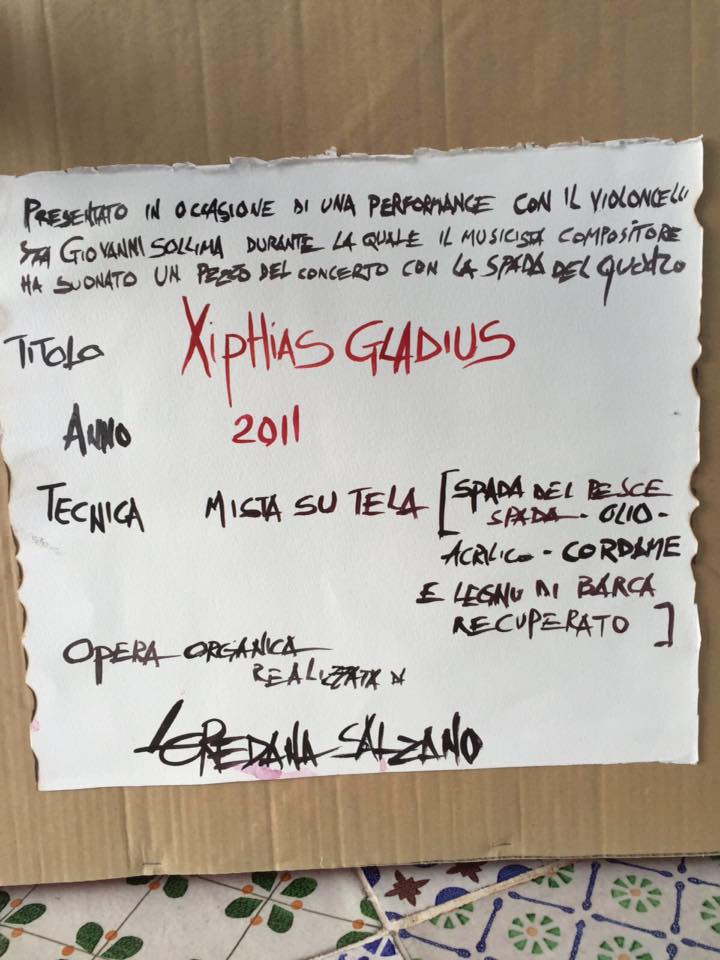 PRESENTATO IN OCCASIONE DI UNA PERFORMANCE CON IL VIOLONCELLI
STA GIOVANNI SOLLIMA DURANTE LA QUALE IL MUSICISTA COMPOSITORE
HA SUONATO UN PEZZO DEL CONCERTO CON LA SPADA DEL QUADRO
TITOLO XIPHIAS GLADIUS
ANNO 2011
TECNICA MISTA SU TELA [SPADA DEL PESCE
SPADA - OLIO -
ACRILICO - CORDAME
E LEGNO DI BARCA
RECUPERATO ]
OPERA ORGANICA
REALIZZATA DI
LOREDANA SALZANO